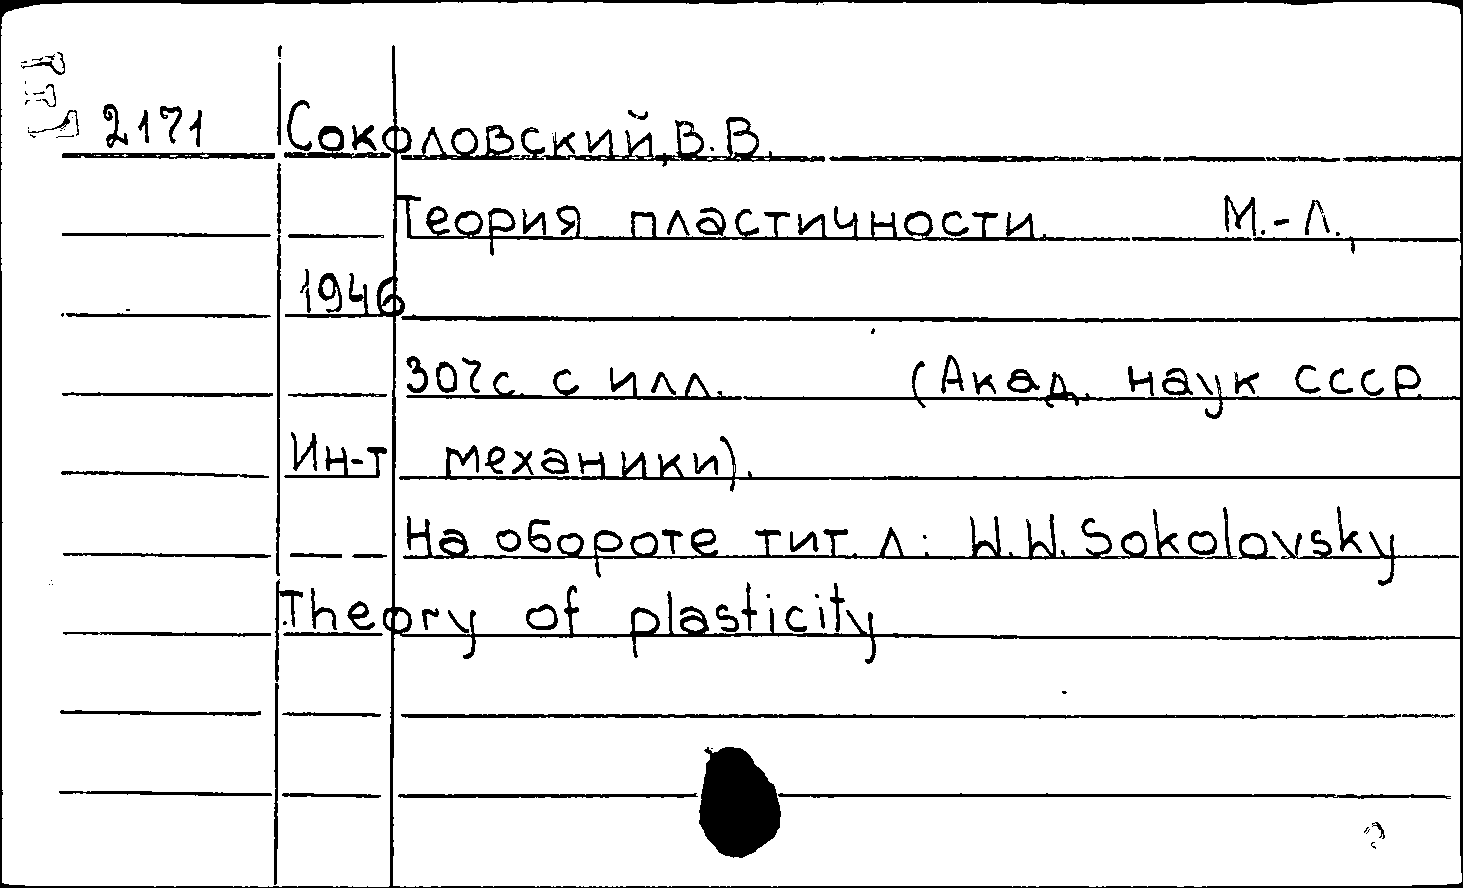 2171 Соколовский, В.В.
Теория пластичности. М.-Л.,
1946
307с. с илл. (Акад. наук СССР.
Ин-т механики).
На обороте тит. л.: W.W. Sokolovsky
Theory of plasticity